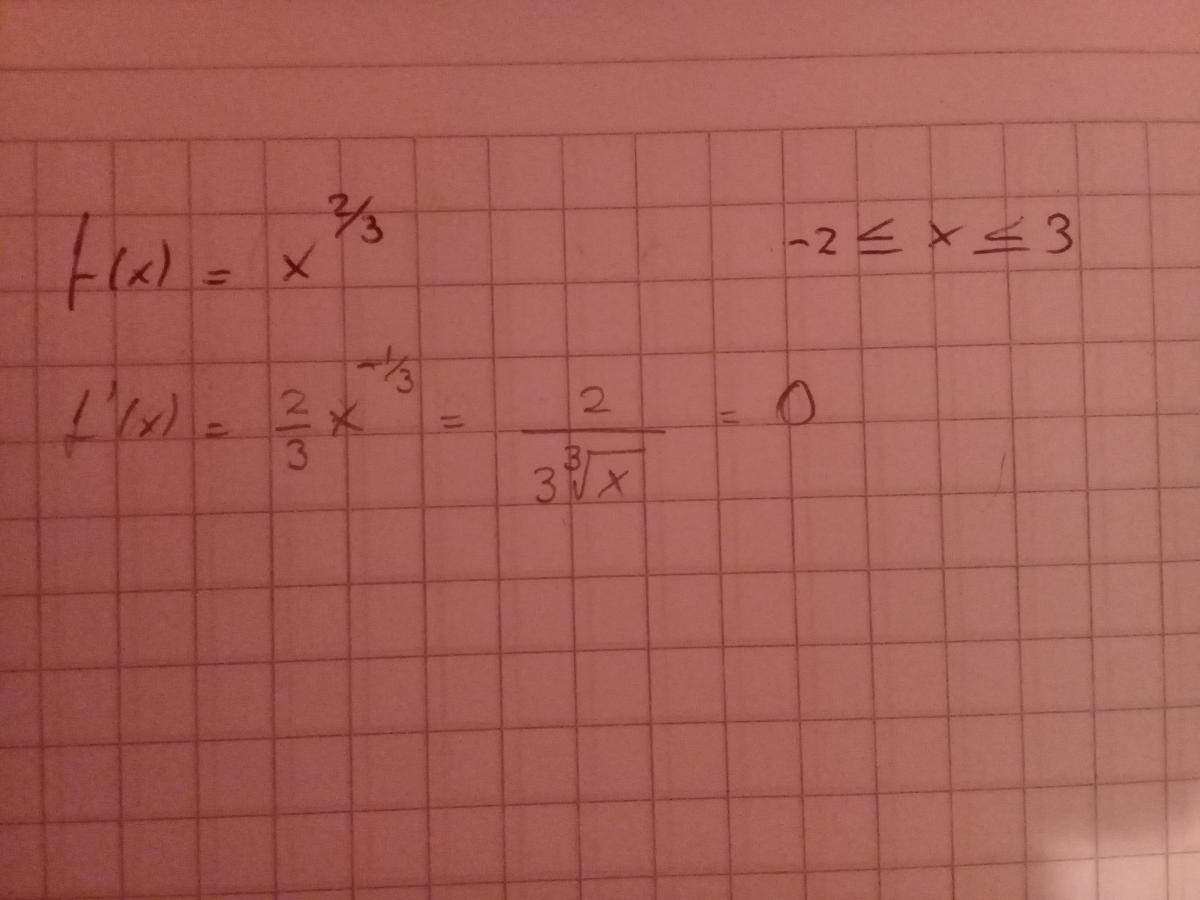 f(x) = x^{2/3} -2 ≤ x ≤ 3
f'(x) = \frac{2}{3} x^{-1/3} = \frac{2}{3\sqrt[3]{x}} = 0